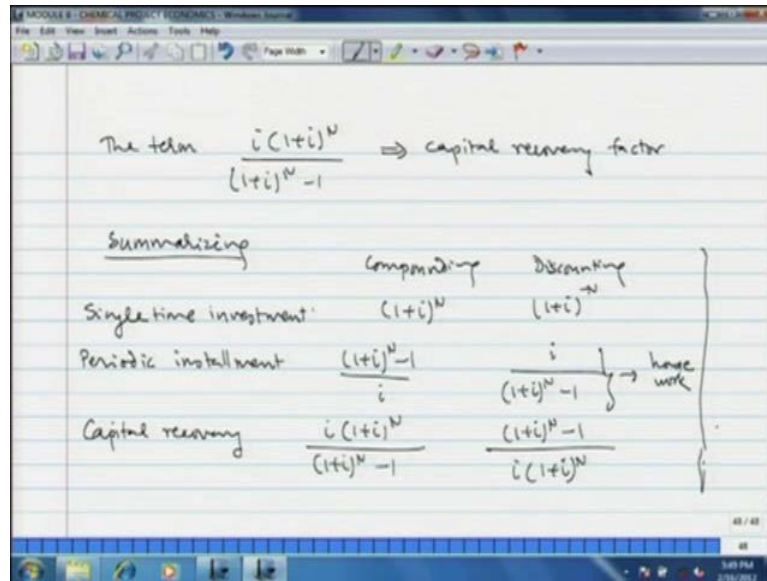 MODULE 8 - CHEMICAL PROJECT ECONOMICS - Windows Journal
File Edit View Insert Actions Tools Help
Page Width
The term i(1+i)^N / (1+i)^N -1 ⇒ capital recovery factor
Summarizing
Compounding Discounting
Single time investment (1+i)^N (1+i)^-N
Periodic installment (1+i)^N -1 / i i / (1+i)^N -1 → home work
Capital recovery i(1+i)^N / (1+i)^N -1 (1+i)^N -1 / i(1+i)^N
48 / 48
48
5:49 PM